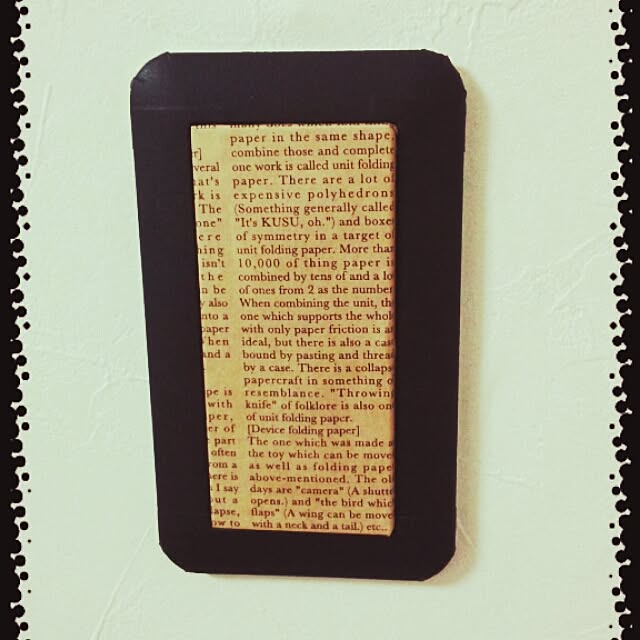 paper in the same shape,
combine those and complete
one work is called unit folding
paper. There are a lot of
expensive polyhedrons
(Something generally called
"It's KUSU, oh.") and boxe
of symmetry in a target o
unit folding paper. More than
10,000 of thing paper i
combined by tens of and a lo
of ones from 2 as the number
When combining the unit, th
one which supports the whol
with only paper friction is a
ideal, but there is also a cas
bound by pasting and threa
by a case. There is a collaps
papercraft in something o
resemblance. "Throwin
knife" of folklore is also on
of unit folding paper.
[Device folding paper]
The one which was made a
the toy which can be move
as well as folding pape
above-mentioned. The ol
days are "camera" (A shutt
opens.) and "the bird whic
flaps" (A wing can be move
with a neck and a tail.) etc..
r]
veral
at's
k is
The
one"
ere
hing
isn't
the
n be
also
nto a
paper
hen
and a
pe is
with
per,
er of
part
often
rom a
ere is
I say
out a
apse,
ow to